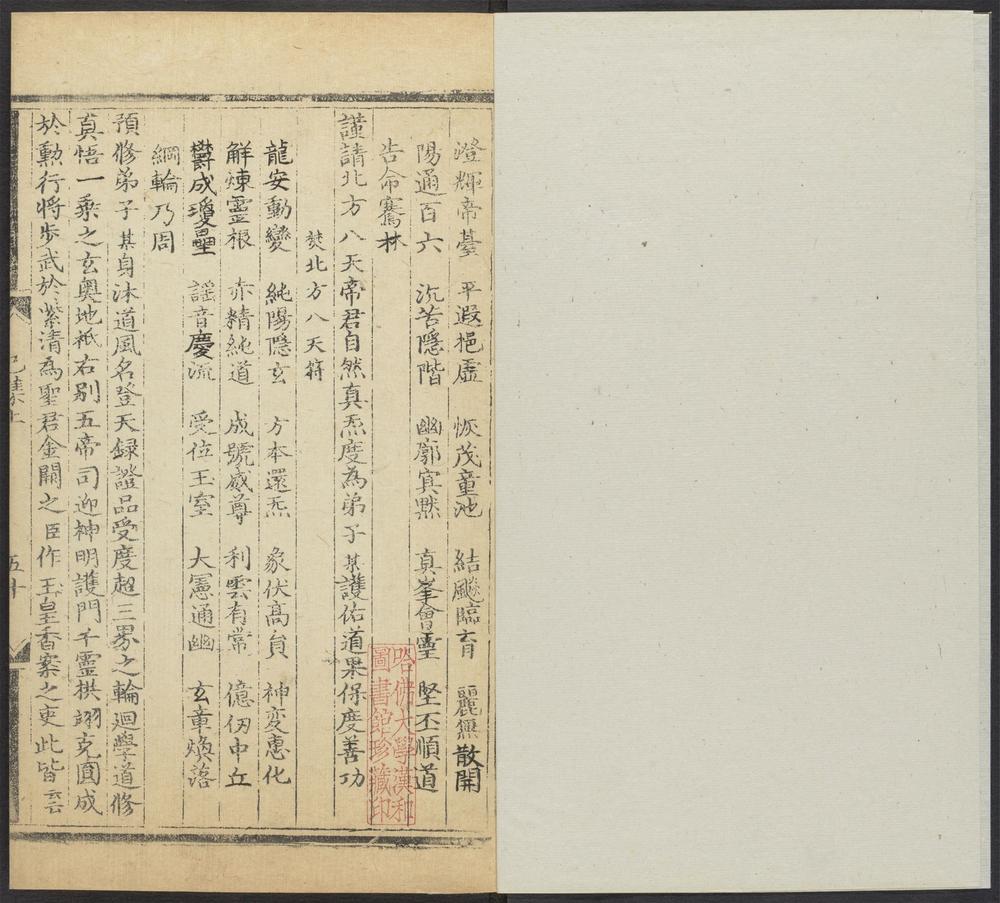 澄輝帝臺　平遐挹虛　恢茂童池　結颷臨育　麗無散開
陽通百六　沉苦隱階　幽廓冥黙　真峯會靈　堅丕順道
告命騫林
謹請北方八天帝君自然真炁度為弟子某護佑道果保度善功
焚北方八天符
龍安動變　純陽隱玄　方本還炁　象伏高貟　神変惠化
解煉靈根　赤精純道　成號威尊　利雲有常　億仞中丘
欝成瓊壘　謡音慶流　受位玉室　大憲通幽　玄章煥落
綱輪乃周
預修弟子某身沐道風名登天録證品受度超三界之輪迴學道修
真悟一乘之玄奥地祇右别五帝司迎神明護門千靈拱翊克圓成
於勲行将歩武於紫清為聖君金闕之臣作玉皇香案之吏此皆云
五十
哈佛大學漢和
圖書館珍藏印